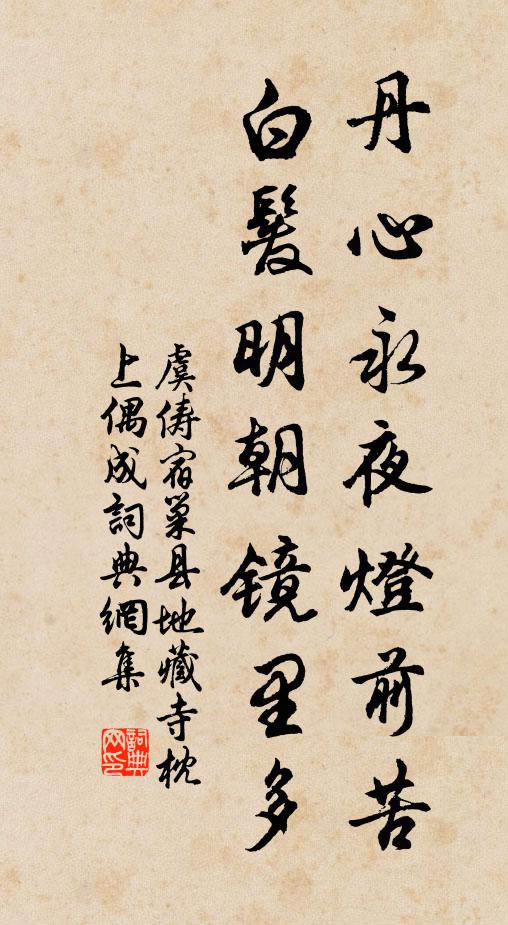 丹心永夜燈前苦
白髮明朝镜里多
虞俦宿巢县地藏寺枕
上偶成詞典網集
詞典网印